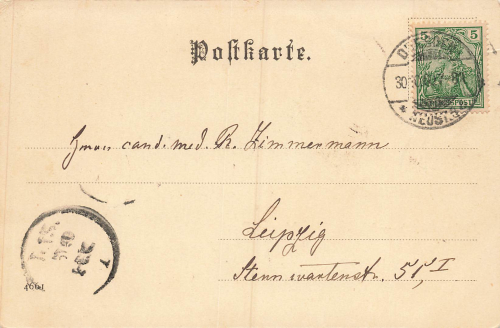 Postkarte.
5 5
REICHSPOST
NEUST.
30
Herrn cand. med. R. Zimmermann
Leipzig
Sternwartenstr. 51, I
4601